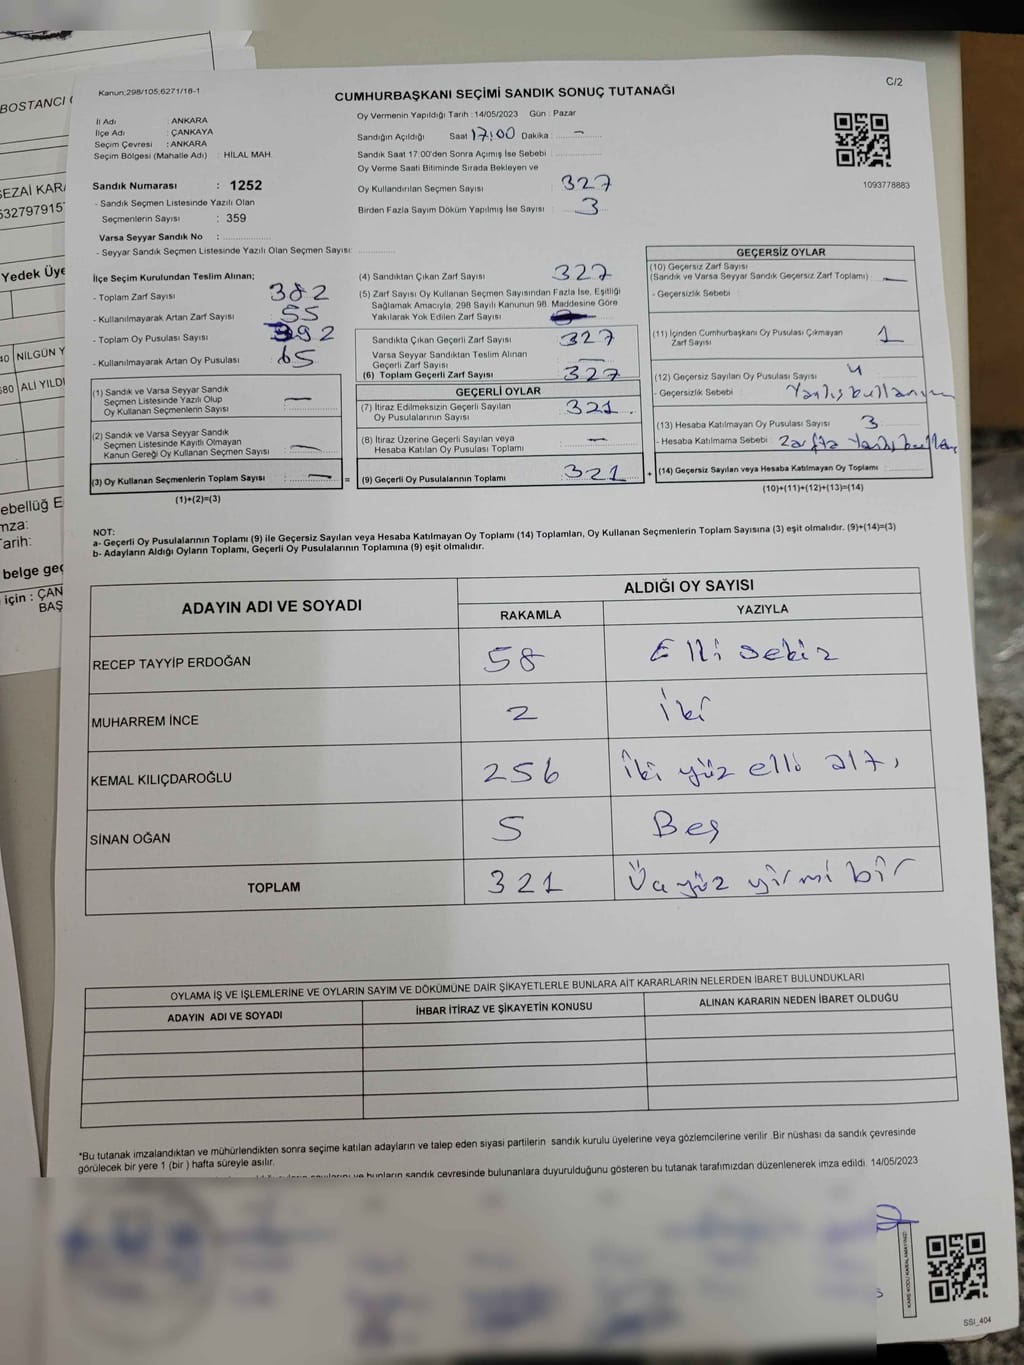 BOSTANCI
Kanun:298/105,6271/18-1
C/2
CUMHURBAŞKANI SEÇİMİ SANDIK SONUÇ TUTANAĞI
İl Adı : ANKARA
İlçe Adı : ÇANKAYA
Seçim Çevresi : ANKARA
Seçim Bölgesi (Mahalle Adı) : HİLAL MAH.
Sandık Numarası : 1252
- Sandık Seçmen Listesinde Yazılı Olan
Seçmenlerin Sayısı : 359
Varsa Seyyar Sandık No :
- Seyyar Sandık Seçmen Listesinde Yazılı Olan Seçmen Sayısı:
Oy Vermenin Yapıldığı Tarih : 14/05/2023 Gün : Pazar
Sandığın Açıldığı Saat 17:00 Dakika : -
Sandık Saat 17:00'den Sonra Açımış İse Sebebi :
Oy Verme Saati Bitiminde Sırada Bekleyen ve
Oy Kullandırılan Seçmen Sayısı 327
Birden Fazla Sayım Döküm Yapılmış İse Sayısı : 3
1093778883
İlçe Seçim Kurulundan Teslim Alınan;
- Toplam Zarf Sayısı : 382
- Kullanılmayarak Artan Zarf Sayısı : 55
- Toplam Oy Pusulası Sayısı : 392
- Kullanılmayarak Artan Oy Pusulası : 65
(1) Sandık ve Varsa Seyyar Sandık
Seçmen Listesinde Yazılı Olup
Oy Kullanan Seçmenlerin Sayısı : -
(2) Sandık ve Varsa Seyyar Sandık
Seçmen Listesinde Kayıtlı Olmayan
Kanun Gereği Oy Kullanan Seçmen Sayısı : -
(3) Oy Kullanan Seçmenlerin Toplam Sayısı : - =
(1)+(2)=(3)
(4) Sandıktan Çıkan Zarf Sayısı 327
(5) Zarf Sayısı Oy Kullanan Seçmen Sayısından Fazla İse, Eşitliği
Sağlamak Amacıyla, 298 Sayılı Kanunun 98. Maddesine Göre
Yakılarak Yok Edilen Zarf Sayısı
Sandıkta Çıkan Geçerli Zarf Sayısı : 327
Varsa Seyyar Sandıktan Teslim Alınan
Geçerli Zarf Sayısı : -
(6) Toplam Geçerli Zarf Sayısı : 327
GEÇERLİ OYLAR
(7) İtiraz Edilmeksizin Geçerli Sayılan
Oy Pusulalarının Sayısı : 321
(8) İtiraz Üzerine Geçerli Sayılan veya
Hesaba Katılan Oy Pusulası Toplamı : -
(9) Geçerli Oy Pusulalarının Toplamı : 321 +
GEÇERSİZ OYLAR
(10) Geçersiz Zarf Sayısı
(Sandık ve Varsa Seyyar Sandık Geçersiz Zarf Toplamı) : -
- Geçersizlik Sebebi :
(11) İçinden Cumhurbaşkanı Oy Pusulası Çıkmayan
Zarf Sayısı : 1
(12) Geçersiz Sayılan Oy Pusulası Sayısı : 4
- Geçersizlik Sebebi : Yanlış kullanım
(13) Hesaba Katılmayan Oy Pusulası Sayısı : 3
- Hesaba Katılmama Sebebi : Zarfta Yanlış
(14) Geçersiz Sayılan veya Hesaba Katılmayan Oy Toplamı :
(10)+(11)+(12)+(13)=(14)
NOT:
a- Geçerli Oy Pusulalarının Toplamı (9) ile Geçersiz Sayılan veya Hesaba Katılmayan Oy Toplamı (14) Toplamları, Oy Kullanan Seçmenlerin Toplam Sayısına (3) eşit olmalıdır. (9)+(14)=(3)
b- Adayların Aldığı Oyların Toplamı, Geçerli Oy Pusulalarının Toplamına (9) eşit olmalıdır.
ADAYIN ADI VE SOYADI ALDIĞI OY SAYISI
RAKAMLA YAZIYLA
RECEP TAYYİP ERDOĞAN 58 Elli sekiz
MUHARREM İNCE 2 İki
KEMAL KILIÇDAROĞLU 256 İki yüz elli altı
SİNAN OĞAN 5 Beş
TOPLAM 321 Üç yüz yirmi bir
OYLAMA İŞ VE İŞLEMLERİNE VE OYLARIN SAYIM VE DÖKÜMÜNE DAİR ŞİKAYETLERLE BUNLARA AİT KARARLARIN NELERDEN İBARET BULUNDUKLARI
ADAYIN ADI VE SOYADI İHBAR İTİRAZ VE ŞİKAYETİN KONUSU ALINAN KARARIN NEDEN İBARET OLDUĞU
*Bu tutanak imzalandıktan ve mühürlendikten sonra seçime katılan adayların ve talep eden siyasi partilerin sandık kurulu üyelerine veya gözlemcilerine verilir .Bir nüshası da sandık çevresinde
görülecek bir yere 1 (bir ) hafta süreyle asılır.
ve bunların sandık çevresinde bulunanlara duyurulduğunu gösteren bu tutanak tarafımızdan düzenlenerek imza edildi. 14/05/2023
SSİ_404
Yedek Üye
NİLGÜN Y
ALİ YILDI
belge geç
için : ÇAN
BAŞ